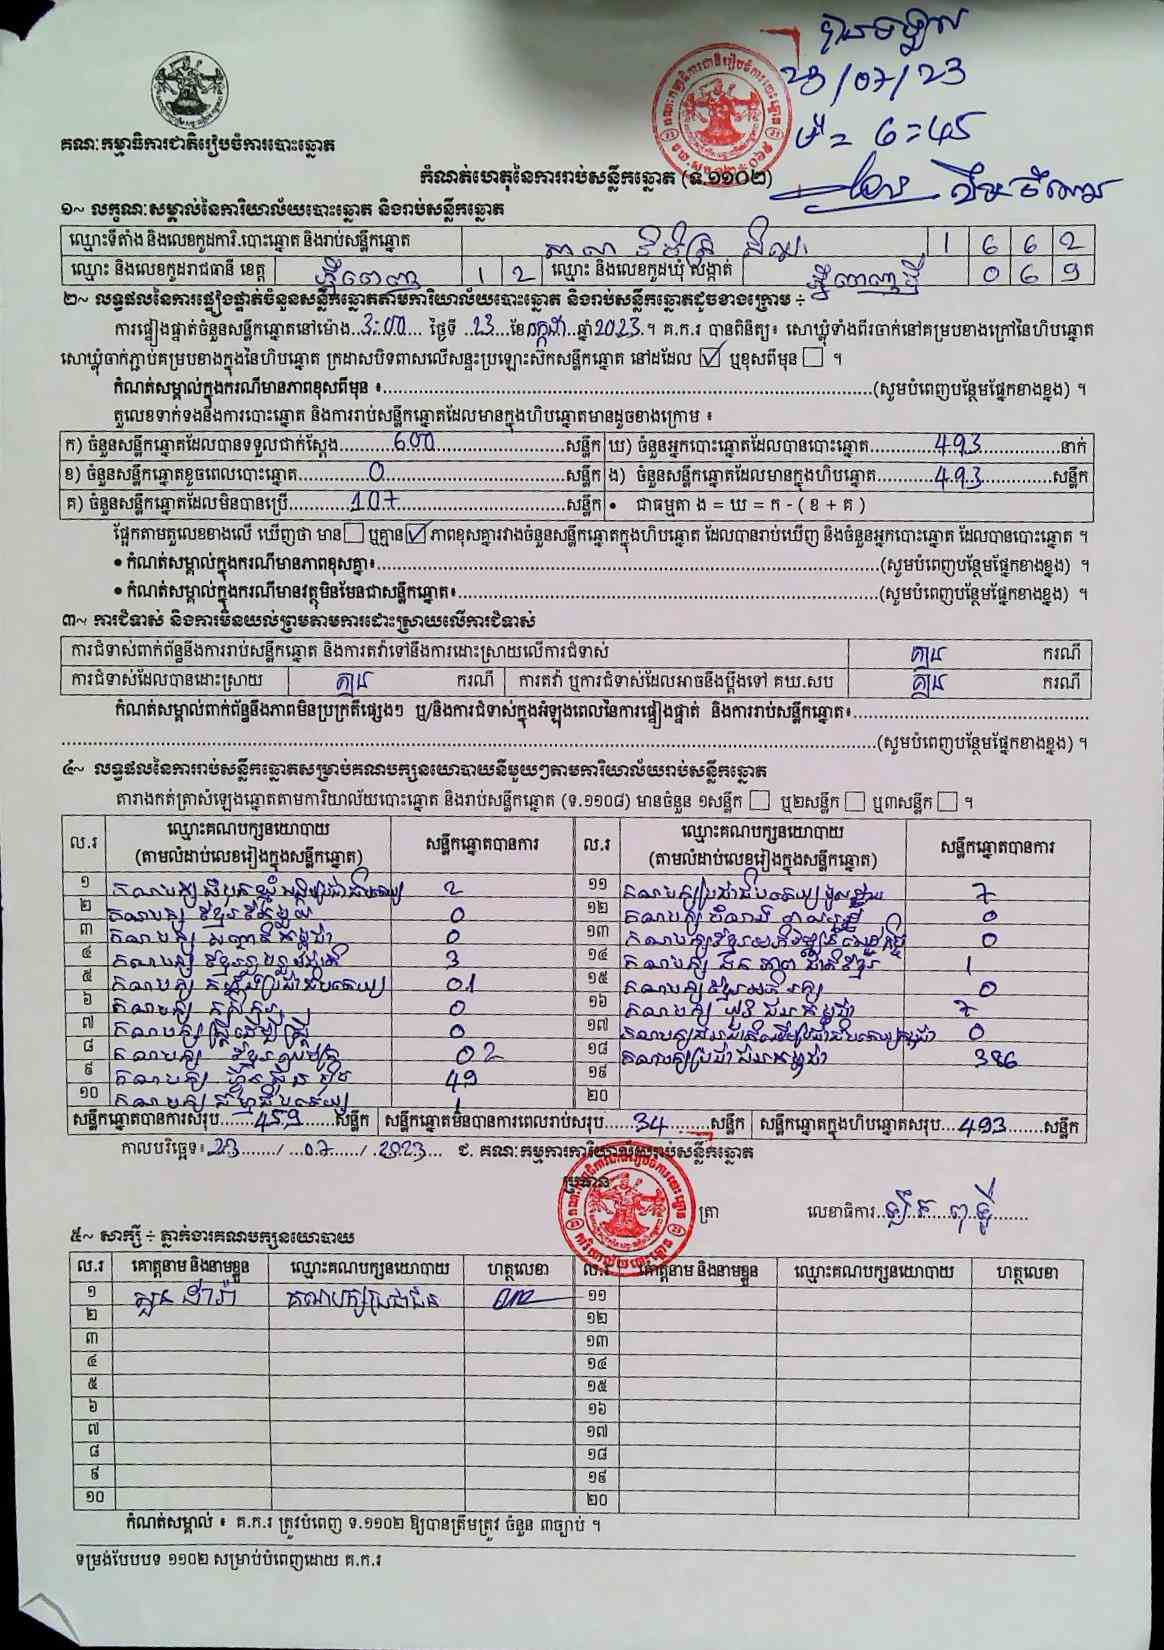 គណៈកម្មាធិការជាតិរៀបចំការបោះឆ្នោត
23/07/23
ម៉ = 6=45
កំណត់ហេតុនៃការរាប់សន្លឹកឆ្នោត (ទ.១១០២)
១~ លក្ខណៈសម្គាល់នៃការិយាល័យបោះឆ្នោត និងរាប់សន្លឹកឆ្នោត
ឈ្មោះទីតាំង និងលេខកូដការិ.បោះឆ្នោត និងរាប់សន្លឹកឆ្នោត 1 6 6 2
ឈ្មោះ និងលេខកូដរាជធានី ខេត្ត ភ្នំពេញ 1 2 ឈ្មោះ និងលេខកូដឃុំ សង្កាត់ ភ្នំពេញថ្មី 0 6 9
២~ លទ្ធផលនៃការផ្ទៀងផ្ទាត់ចំនួនសន្លឹកឆ្នោតតាមការិយាល័យបោះឆ្នោត និងរាប់សន្លឹកឆ្នោតដូចខាងក្រោម ÷
ការផ្ទៀងផ្ទាត់ចំនួនសន្លឹកឆ្នោតនៅម៉ោង..3:00... ថ្ងៃទី ..23..ខែកក្កដា..ឆ្នាំ2023.។ គ.ក.រ បានពិនិត្យ៖ សោឃ្លុំទាំងពីរចាក់នៅគម្របខាងក្រៅនៃហិបឆ្នោត
សោឃ្លុំចាក់ភ្ជាប់គម្របខាងក្នុងនៃហិបឆ្នោត ក្រដាសបិទពាសលើសន្ទះប្រឡោះស៊កសន្លឹកឆ្នោត នៅដដែល ☑ ឬខុសពីមុន ☐ ។
កំណត់សម្គាល់ក្នុងករណីមានភាពខុសពីមុន ៖........(សូមបំពេញបន្ថែមផ្នែកខាងខ្នង) ។
តួលេខទាក់ទងនឹងការបោះឆ្នោត និងការរាប់សន្លឹកឆ្នោតដែលមានក្នុងហិបឆ្នោតមានដូចខាងក្រោម ៖
ក) ចំនួនសន្លឹកឆ្នោតដែលបានទទួលជាក់ស្តែង........600........សន្លឹក ឃ) ចំនួនអ្នកបោះឆ្នោតដែលបានបោះឆ្នោត........493........នាក់
ខ) ចំនួនសន្លឹកឆ្នោតខូចពេលបោះឆ្នោត........0........សន្លឹក ង) ចំនួនសន្លឹកឆ្នោតដែលមានក្នុងហិបឆ្នោត........493........សន្លឹក
គ) ចំនួនសន្លឹកឆ្នោតដែលមិនបានប្រើ........107........សន្លឹក • ជាធម្មតា ង = ឃ = ក - ( ខ + គ )
ផ្អែកតាមតួលេខខាងលើ ឃើញថា មាន ☐ ឬគ្មាន ☑ ភាពខុសគ្នារវាងចំនួនសន្លឹកឆ្នោតក្នុងហិបឆ្នោត ដែលបានរាប់ឃើញ និងចំនួនអ្នកបោះឆ្នោត ដែលបានបោះឆ្នោត ។
• កំណត់សម្គាល់ក្នុងករណីមានភាពខុសគ្នា៖........(សូមបំពេញបន្ថែមផ្នែកខាងខ្នង) ។
• កំណត់សម្គាល់ក្នុងករណីមានវត្ថុមិនមែនជាសន្លឹកឆ្នោត៖........(សូមបំពេញបន្ថែមផ្នែកខាងខ្នង) ។
៣~ ការជំទាស់ និងការមិនយល់ព្រមតាមការដោះស្រាយលើការជំទាស់
ការជំទាស់ពាក់ព័ន្ធនឹងការរាប់សន្លឹកឆ្នោត និងការតវ៉ាទៅនឹងការដោះស្រាយលើការជំទាស់ គ្មាន ករណី
ការជំទាស់ដែលបានដោះស្រាយ គ្មាន ករណី ការតវ៉ា ឬការជំទាស់ដែលអាចនឹងប្តឹងទៅ គឃ.សប គ្មាន ករណី
កំណត់សម្គាល់ពាក់ព័ន្ធនឹងភាពមិនប្រក្រតីផ្សេងៗ ឬ/និងការជំទាស់ក្នុងអំឡុងពេលនៃការផ្ទៀងផ្ទាត់ និងការរាប់សន្លឹកឆ្នោត៖........
........(សូមបំពេញបន្ថែមផ្នែកខាងខ្នង) ។
៤~ លទ្ធផលនៃការរាប់សន្លឹកឆ្នោតសម្រាប់គណបក្សនយោបាយនីមួយៗតាមការិយាល័យរាប់សន្លឹកឆ្នោត
តារាងកត់ត្រាសំឡេងឆ្នោតតាមការិយាល័យបោះឆ្នោត និងរាប់សន្លឹកឆ្នោត (ទ.១១០៨) មានចំនួន ១សន្លឹក ☐ ឬ២សន្លឹក ☐ ឬ៣សន្លឹក ☐ ។
ល.រ ឈ្មោះគណបក្សនយោបាយ (តាមលំដាប់លេខរៀងក្នុងសន្លឹកឆ្នោត) សន្លឹកឆ្នោតបានការ ល.រ ឈ្មោះគណបក្សនយោបាយ (តាមលំដាប់លេខរៀងក្នុងសន្លឹកឆ្នោត) សន្លឹកឆ្នោតបានការ
១ គណបក្ស ឃ្មុំសង្គមប្រជាធិបតេយ្យ 2 ១១ គណបក្សប្រជាធិបតេយ្យមូលដ្ឋាន 7
២ គណបក្ស ខ្មែររួបរួម 0 ១២ គណបក្ស 0
៣ គណបក្ស សញ្ជាតិកម្ពុជា 0 ១៣ គណបក្សខ្មែរអភិវឌ្ឍន៍សេដ្ឋកិច្ច 0
៤ គណបក្ស ខ្មែររួបរួមជាតិ 3 ១៤ គណបក្ស ឯកភាពជាតិខ្មែរ 1
៥ គណបក្ស កម្លាំងប្រជាធិបតេយ្យ 01 ១៥ គណបក្ស 0
៦ គណបក្ស កសិករ 0 ១៦ គណបក្ស យុវជនកម្ពុជា 7
៧ គណបក្សស្ត្រីដើម្បីស្ត្រី 0 ១៧ គណបក្ស 0
៨ គណបក្ស 02 ១៨ គណបក្សប្រជាជនកម្ពុជា 386
៩ គណបក្ស ហ្វ៊ុនស៊ិនប៉ិច 49 ១៩
១០ គណបក្ស ធម្មាធិបតេយ្យ 1 ២០
សន្លឹកឆ្នោតបានការសរុប.......459.......សន្លឹក សន្លឹកឆ្នោតមិនបានការពេលរាប់សរុប.......34.......សន្លឹក សន្លឹកឆ្នោតក្នុងហិបឆ្នោតសរុប...493.......សន្លឹក
កាលបរិច្ឆេទ៖23......./ ...07....../ .2023... ជ. គណៈកម្មការការិយាល័យរាប់សន្លឹកឆ្នោត
ប្រធាន
ត្រា លេខាធិការ
៥~ សាក្សី ÷ ភ្នាក់ងារគណបក្សនយោបាយ
ល.រ គោត្តនាម និងនាមខ្លួន ឈ្មោះគណបក្សនយោបាយ ហត្ថលេខា ល.រ គោត្តនាម និងនាមខ្លួន ឈ្មោះគណបក្សនយោបាយ ហត្ថលេខា
១ សួន ដារ៉ា គណបក្សប្រជាជន ១១
២ ១២
៣ ១៣
៤ ១៤
៥ ១៥
៦ ១៦
៧ ១៧
៨ ១៨
៩ ១៩
១០ ២០
កំណត់សម្គាល់ ៖ គ.ក.រ ត្រូវបំពេញ ទ.១១០២ ឱ្យបានត្រឹមត្រូវ ចំនួន ៣ច្បាប់ ។
ទម្រង់បែបបទ ១១០២ សម្រាប់បំពេញដោយ គ.ក.រ